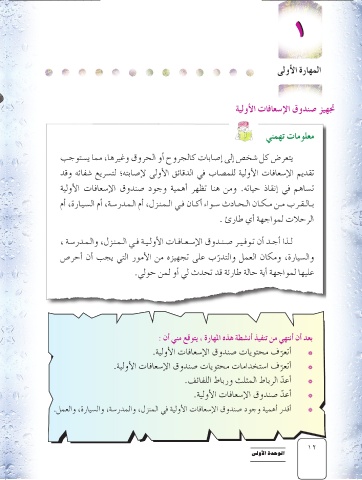 ١
المهارة الأولى
تجهيز صندوق الإسعافات الأولية
معلومات تهمني
يتعرض كل شخص إلى إصابات كالجروح أو الحروق وغيرها، مما يستوجب
تقديم الإسعافات الأولية للمصاب في الدقائق الأولى لإصابته؛ لتسريع شفائه وقد
تساهم في إنقاذ حياته. ومن هنا تظهر أهمية وجود صندوق الإسعافات الأولية
بالقرب من مكان الحادث سواء أكان في المنزل، أم المدرسة، أم السيارة، أم
الرحلات لمواجهة أي طارئ .
لذا أجد أن توفير صندوق الإسعافات الأولية في المنزل، والمدرسة ،
والسيارة، ومكان العمل والتدرّب على تجهيزه من الأمور التي يجب أن أحرص
عليها لمواجهة أية حالة طارئة قد تحدث لي أو لمن حولي.
بعد أن أنتهي من تنفيذ أنشطة هذه المهارة ، يتوقع مني أن :
أتعرّف محتويات صندوق الإسعافات الأولية.
أتعرّف استخدامات محتويات صندوق الإسعافات الأولية.
أعدّ الرباط المثلث ورباط اللفائف.
أعدّ صندوق الإسعافات الأولية.
أقدر أهمية وجود صندوق الإسعافات الأولية في المنزل، والمدرسة، والسيارة، والعمل.
١٢
الوحدة الأولى